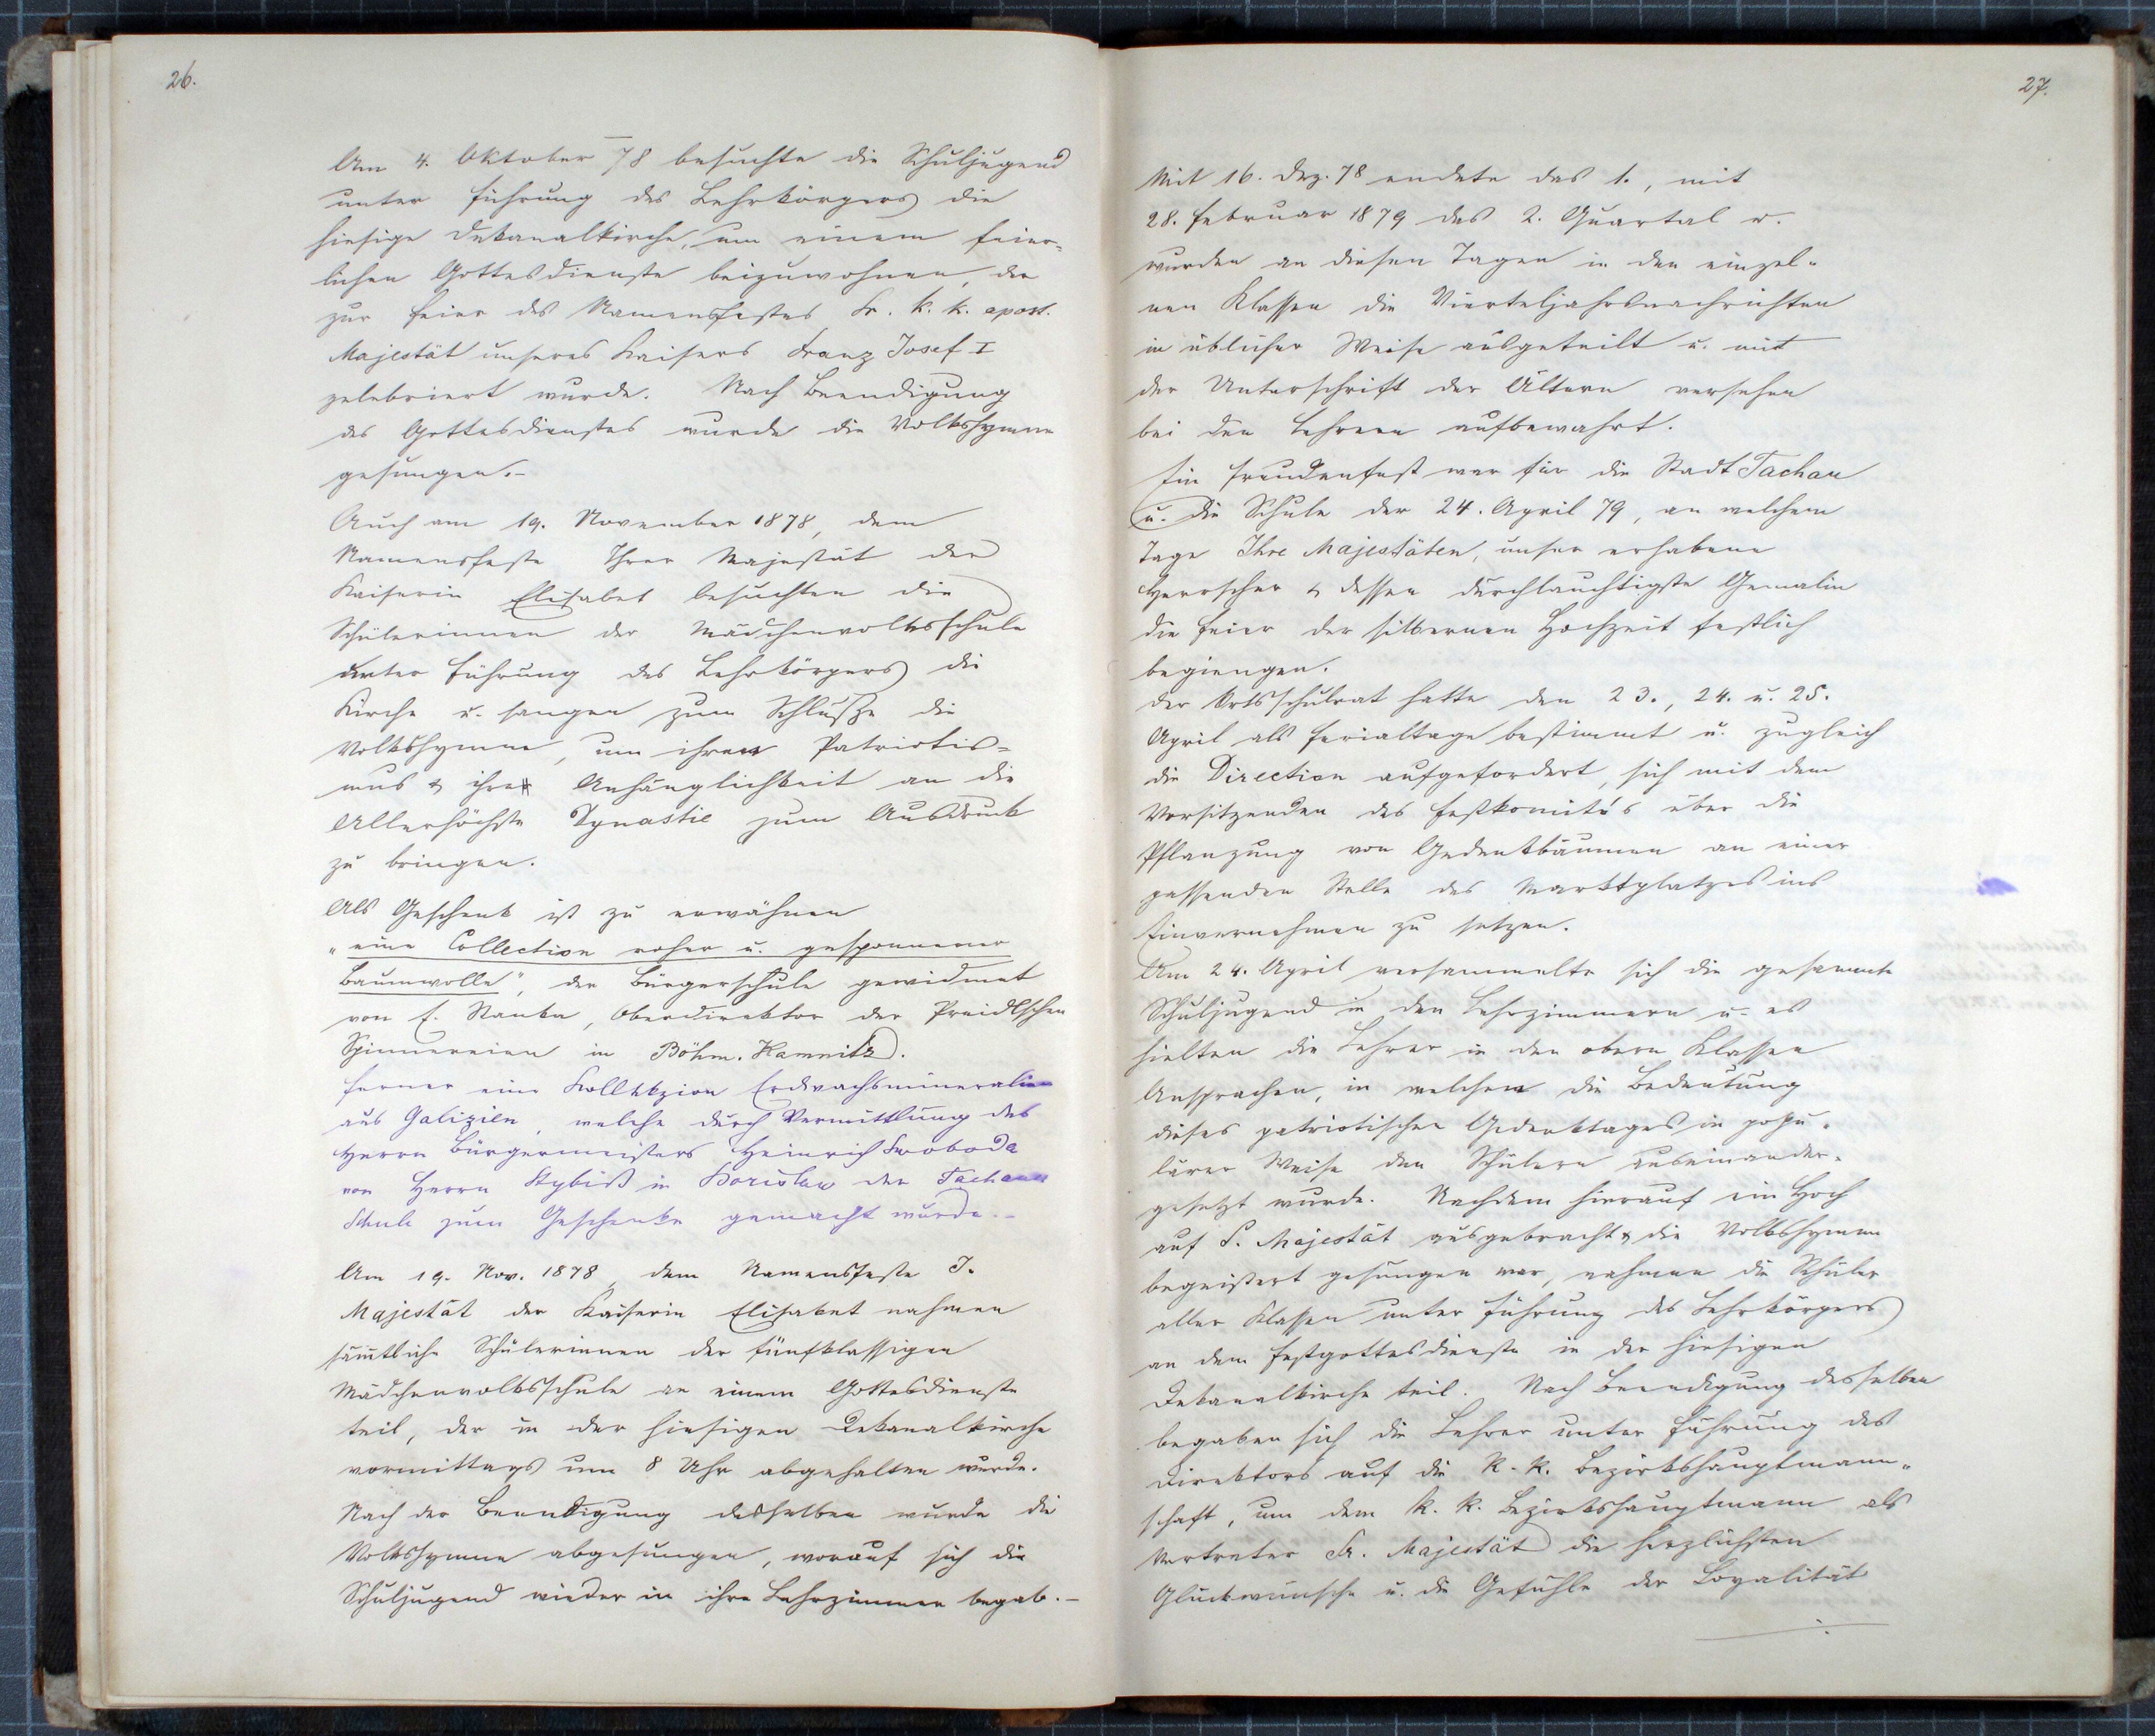 26.
Am 4. Oktober 78 besuchte die Schuljugend
unter Führung des Lehrkörpers die
hiesige Dekanalkirche, um einem feier-
lichen Gottesdienste beizuwohnen, der
zur Feier des Namensfestes Sr. k. k. apost.
Majestät unseres Kaisers Franz Josef I
zelebriert wurde. Nach Beendigung
des Gottesdienstes wurde die Volkshymne
gesungen.-
Auch am 19. November 1878, dem
Namensfeste Ihrer Majestät der
Kaiserin Elisabet besuchten die
Schülerinnen der Mädchenvolksschule
unter Führung des Lehrkörpers die
Kirche u. sangen zum Schluße die
Volkshymne, um ihren Patriotis-
mus & ihre Anhänglichkeit an die
Allerhöchste Dynastie zum Ausdruck
zu bringen.
Als Geschenk ist zu erwähnen
"eine Collection roher u. gesponnener
Baumwolle", der Bürgerschule gewidmet
von E. Stanka, Oberdirektor der Preidlschen
Spinnereien in Böhm. Kamnitz.
ferner eine Kollekzion Erdwachsmineralien
aus Galizien, welche durch Vermittlung des
Herrn Bürgermeisters Heinrich Swoboda
von Herrn Stybiß in Borislaw der Tachauer
Schule zum Geschenke gemacht wurde.-
Am 19. Nov. 1878, dem Namensfeste I.
Majestät der Kaiserin Elisabet nahmen
sämtliche Schülerinnen der fünfklassigen
Mädchenvolksschule an einem Gottesdienste
teil, der in der hiesigen Dekanalkirche
vormittags um 8 Uhr abgehalten wurde.
Nach der Beendigung desselben wurde die
Volkshymne abgesungen, worauf sich die
Schuljugend wieder in ihre Lehrzimmer begab.-
27.
Mit 16. Dez. 78 endete das 1., mit
28. Februar 1879 das 2. Quartal u.
wurden an diesen Tagen in den einzel-
nen Klassen die Vierteljahrsnachrichten
in üblicher Weise ausgeteilt u. mit
der Unterschrift der Ältern versehen
bei den Lehrern aufbewahrt.
Ein Freudenfest war für die Stadt Tachau
u. die Schule der 24. April 79, an welchem
Tage Ihre Majestäten, unser erhabene
Herrscher & dessen durchlauchtigste Gemalin
die Feier der silbernen Hochzeit festlich
begiengen.
Der Ortsschulrat hatte den 23., 24. u. 25.
April als Ferialtage bestimmt u. zugleich
die Direction aufgefordert, sich mit dem
Vorsitzenden des Festkomités über die
Pflanzung von Gedenkbäumen an einer
passenden Stelle des Marktplatzes ins
Einvernehmen zu setzen.
Am 24. April versammelte sich die gesammte
Schuljugend in den Lehrzimmern u. es
hielten die Lehrer in den obern Klassen
Ansprachen, in welchen die Bedeutung
dieses patriotischen Gedenktages in popu-
lärer Weise den Schülern auseinander-
gesetzt wurde. Nachdem hierauf ein Hoch
auf S. Majestät ausgebracht & die Volkshymne
begeistert gesungen war, nahmen die Schüler
aller Klassen unter Führung des Lehrkörpers
an dem Festgottesdienste in der hiesigen
Dekanalkirche teil. Nach Beendigung desselben
begaben sich die Lehrer unter Führung des
Direktors auf die k. k. Bezirkshauptmann-
schaft, um dem k. k. Bezirkshauptmann als
Vertreter Sr. Majestät die herzlichsten
Glückwünsche u. die Gefühle der Loyalität